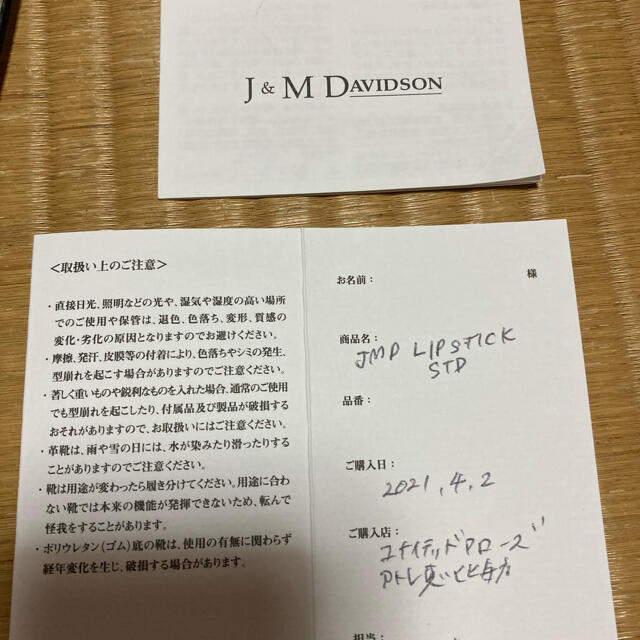 J & M DAVIDSON
<取扱い上のご注意>
・直接日光、照明などの光や、湿気や湿度の高い場所
でのご使用や保管は、退色、色落ち、変形、質感の
変化・劣化の原因となりますのでお避けください。
・摩擦、発汗、皮膜等の付着により、色落ちやシミの発生、
型崩れを起こす場合がありますのでご注意ください。
・著しく重いものや鋭利なものを入れた場合、通常のご使用
でも型崩れを起こしたり、付属品及び製品が破損する
おそれがありますので、お取扱いにはご注意ください。
・革靴は、雨や雪の日には、水が染みたり滑ったりする
ことがありますのでご注意ください。
・靴は用途が変わったら履き分けてください。用途に合わ
ない靴では本来の機能が発揮できないため、転んで
怪我をすることがあります。
・ポリウレタン(ゴム)底の靴は、使用の有無に関わらず
経年変化を生じ、破損する場合があります。
お名前: 様
商品名:
JMD LIPSTICK
STD
品番:
ご購入日:
2021.4.2
ご購入店:
ユナイテッドアローズ
アトレ恵比寿
担当: